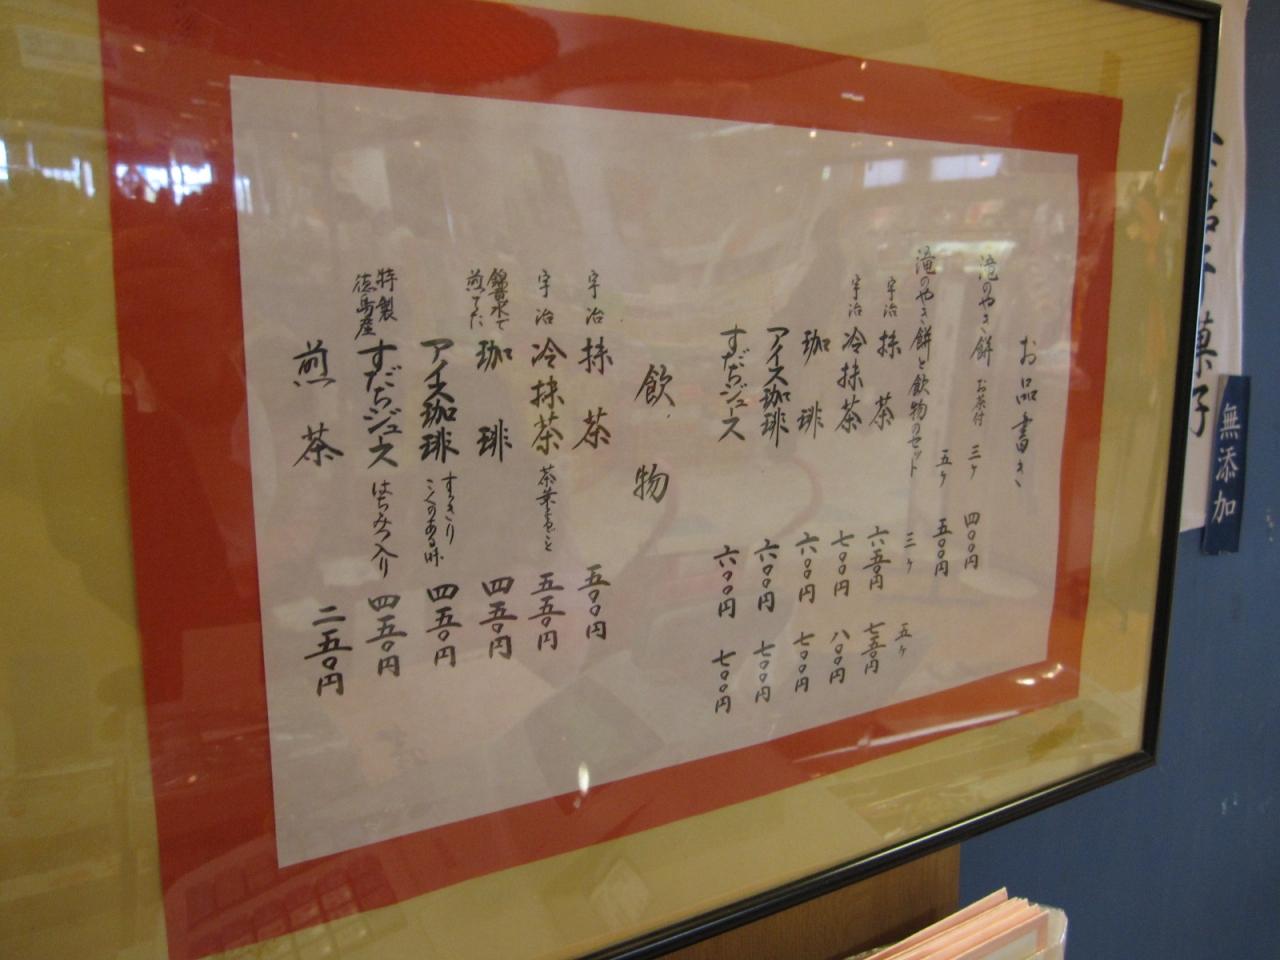 お品書き
滝のやき餅 お茶付 三ヶ 四〇〇円
五ヶ 五〇〇円
滝のやき餅と飲物のセット 三ヶ 五ヶ
宇治 抹茶 六五〇円 七五〇円
宇治 冷抹茶 七〇〇円 八〇〇円
珈琲 六〇〇円 七〇〇円
アイス珈琲 六〇〇円 七〇〇円
すだちジュース 六〇〇円 七〇〇円
飲物
宇治 抹茶 五〇〇円
宇治 冷抹茶 茶葉まるごと 五五〇円
錦竜水で煎てた 珈琲 四五〇円
アイス珈琲 すっきりこくのある味 四五〇円
特製 徳島産 すだちジュース はちみつ入り 四五〇円
煎茶 二五〇円
菓子
無添加